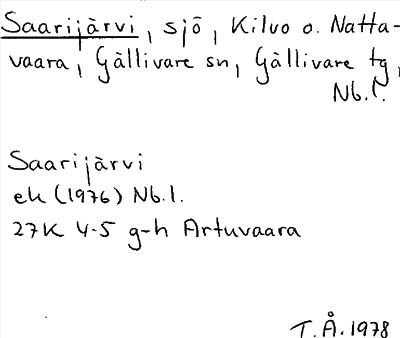 Saarijärvi, sjö, Kilvo o. Natta-
vaara, Gällivare sn, Gällivare tg,
Nb.l.
Saarijärvi
ek (1976) Nb.l.
27K 4-5 g-h Artuvaara
T.Å. 1978